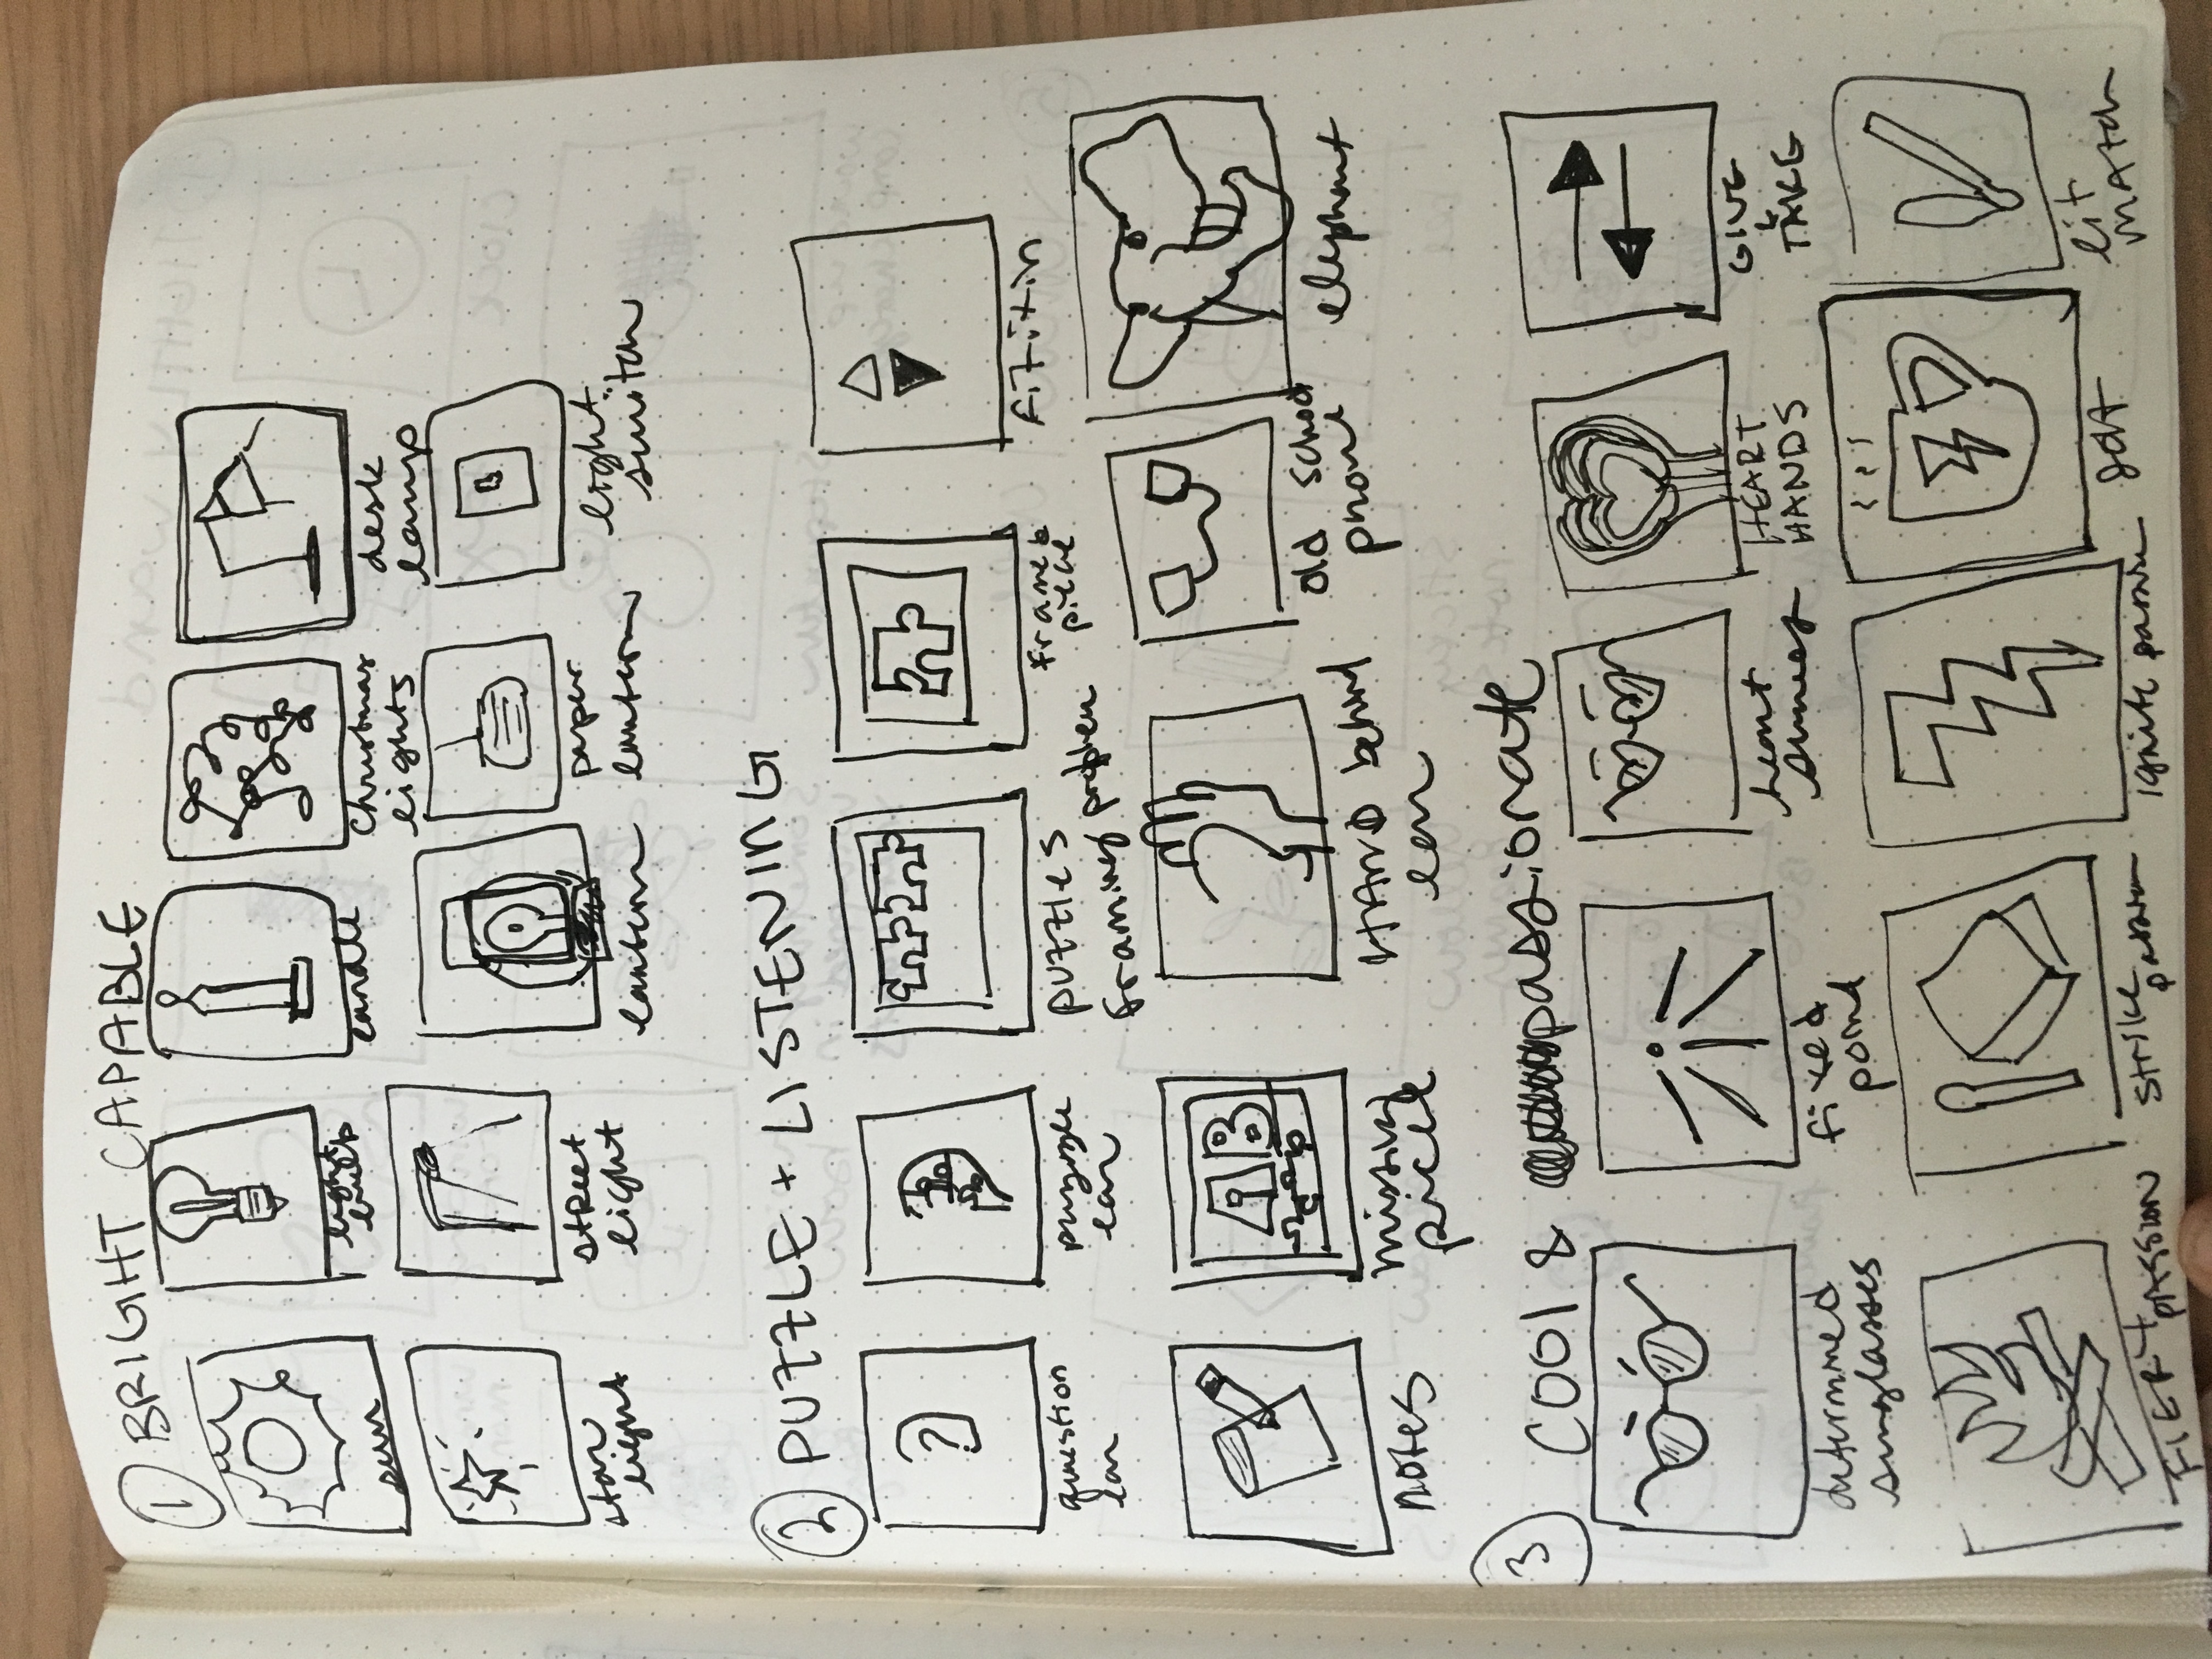 1 BRIGHT CAPABLE
sun
light
bulb
candle
Christmas
lights
desk
lamp
star
light
street
light
lantern
paper
lantern
light
switch
2 PUZZLE + LISTENING
?
question
ear
puzzle
ear
puzzles
framing problem
frame &
piece
fititin
notes
A B
missing
piece
HAND behind
ear
old school
phone
elephant
3 COOl & passionate
determined
sunglasses
fixed
point
heart
HEART
HANDS
GIVE
&
TAKE
FIERY
PASSION
strike
passion
ignite passion
Jolt
lit
match